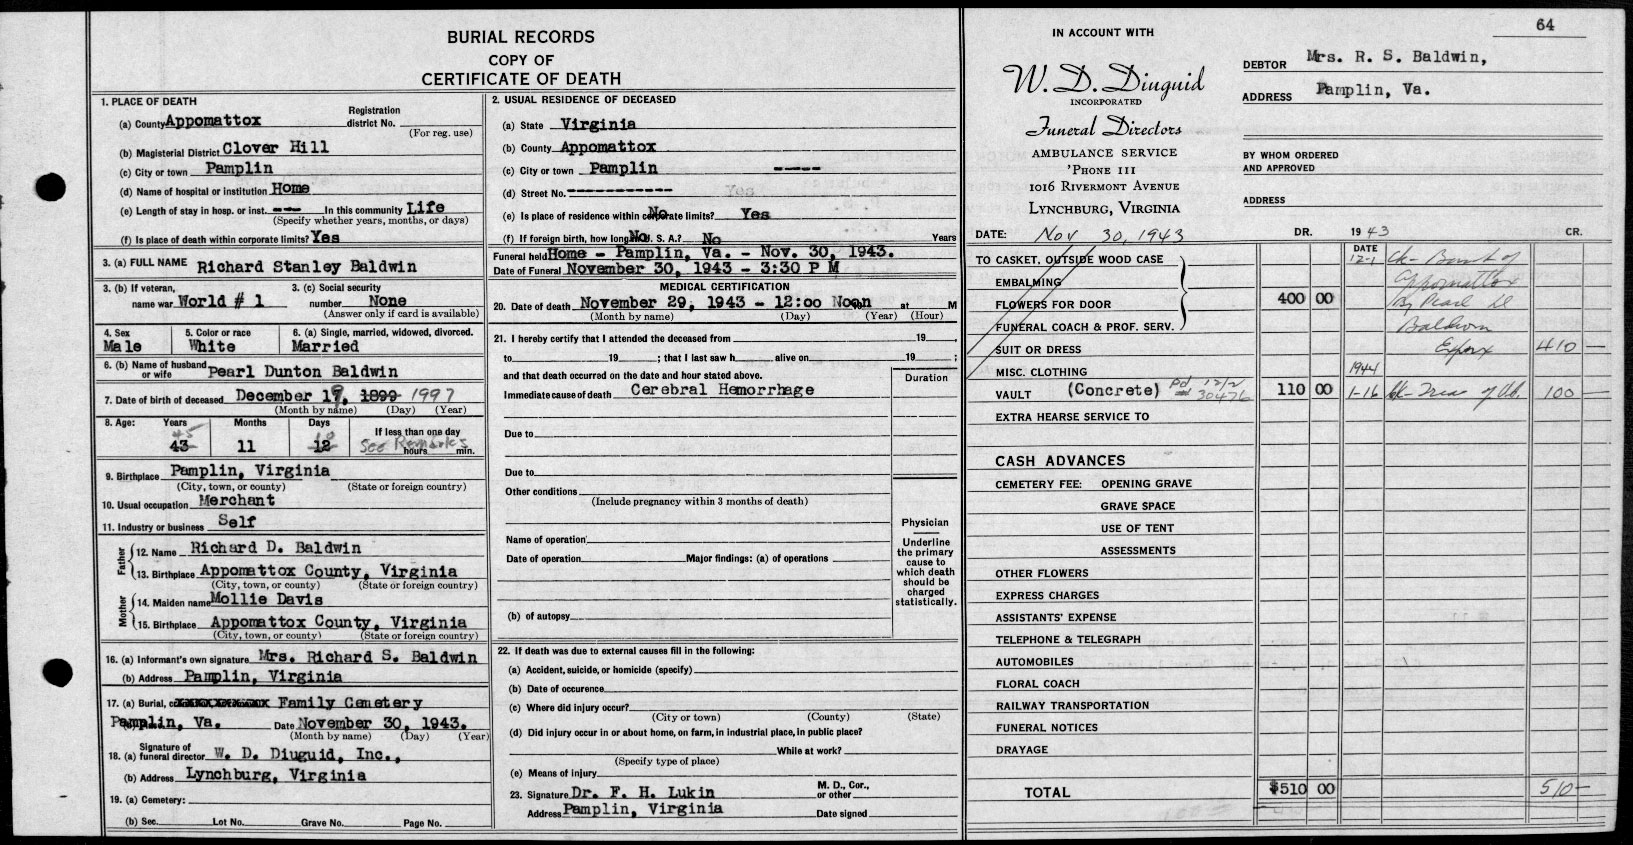 BURIAL RECORDS
COPY OF
CERTIFICATE OF DEATH
1. PLACE OF DEATH
(a) County Appomattox Registration district No.
(For reg. use)
(b) Magisterial District Clover Hill
(c) City or town Pamplin
(d) Name of hospital or institution Home
(e) Length of stay in hosp. or inst. --- In this community Life
(Specify whether years, months, or days)
(f) Is place of death within corporate limits? Yes
3. (a) FULL NAME Richard Stanley Baldwin
3. (b) If veteran, name war World # 1 3. (c) Social security number None
(Answer only if card is available)
4. Sex Male 5. Color or race White 6. (a) Single, married, widowed, divorced. Married
6. (b) Name of husband or wife Pearl Dunton Baldwin
7. Date of birth of deceased December 19, 1899 1997
(Month by name) (Day) (Year)
8. Age: Years Months Days If less than one day
45 18
43 11 12 See Remarks hours min.
9. Birthplace Pamplin, Virginia
(City, town, or county) (State or foreign country)
10. Usual occupation Merchant
11. Industry or business Self
Father
12. Name Richard D. Baldwin
13. Birthplace Appomattox County, Virginia
(City, town, or county) (State or foreign country)
Mother
14. Maiden name Mollie Davis
15. Birthplace Appomattox County, Virginia
(City, town, or county) (State or foreign country)
16. (a) Informant's own signature Mrs. Richard S. Baldwin
(b) Address Pamplin, Virginia
17. (a) Burial, Family Cemetery
Pamplin, Va. Date November 30, 1943.
(Month by name) (Day) (Year)
18. (a) Signature of funeral director W. D. Diuguid, Inc.,
(b) Address Lynchburg, Virginia
19. (a) Cemetery:
(b) Sec. Lot No. Grave No. Page No.
2. USUAL RESIDENCE OF DECEASED
(a) State Virginia
(b) County Appomattox
(c) City or town Pamplin ----
(d) Street No. ----------- Yes
(e) Is place of residence within corporate limits? No Yes
(f) If foreign birth, how long in U. S. A.? No No Years
Funeral held Home - Pamplin, Va. - Nov. 30, 1943.
Date of Funeral November 30, 1943 - 3:30 P M
MEDICAL CERTIFICATION
20. Date of death November 29, 1943 - 12:00 Noon at M
(Month by name) (Day) (Year) (Hour)
21. I hereby certify that I attended the deceased from 19 ,
to 19 ; that I last saw h alive on 19 ;
and that death occurred on the date and hour stated above.
Duration
Immediate cause of death Cerebral Hemorrhage
Due to
Due to
Other conditions
(Include pregnancy within 3 months of death)
Name of operation
Date of operation Major findings: (a) of operations
(b) of autopsy
Physician
Underline
the primary
cause to
which death
should be
charged
statistically.
22. If death was due to external causes fill in the following:
(a) Accident, suicide, or homicide (specify)
(b) Date of occurence
(c) Where did injury occur?
(City or town) (County) (State)
(d) Did injury occur in or about home, on farm, in industrial place, in public place?
While at work?
(Specify type of place)
(e) Means of injury
23. Signature Dr. F. H. Lukin M. D., Cor., or other
Address Pamplin, Virginia Date signed
64
IN ACCOUNT WITH
W. D. Diuguid
INCORPORATED
Funeral Directors
AMBULANCE SERVICE
'PHONE 111
1016 RIVERMONT AVENUE
LYNCHBURG, VIRGINIA
DEBTOR Mrs. R. S. Baldwin,
ADDRESS Pamplin, Va.
BY WHOM ORDERED
AND APPROVED
ADDRESS
DATE: Nov 30, 1943 DR. 1943 CR.
TO CASKET, OUTSIDE WOOD CASE DATE 12-1 Ck- Bank of
EMBALMING Appomattox
FLOWERS FOR DOOR 400 00 By Pearl D
FUNERAL COACH & PROF. SERV. Baldwin
SUIT OR DRESS Exporx 410 —
MISC. CLOTHING 1944
VAULT (Concrete) Pd 12/2 30476 110 00 1-16 Ck- Treas of Va. 100 —
EXTRA HEARSE SERVICE TO
CASH ADVANCES
CEMETERY FEE: OPENING GRAVE
GRAVE SPACE
USE OF TENT
ASSESSMENTS
OTHER FLOWERS
EXPRESS CHARGES
ASSISTANTS' EXPENSE
TELEPHONE & TELEGRAPH
AUTOMOBILES
FLORAL COACH
RAILWAY TRANSPORTATION
FUNERAL NOTICES
DRAYAGE
TOTAL $510 00 510 —